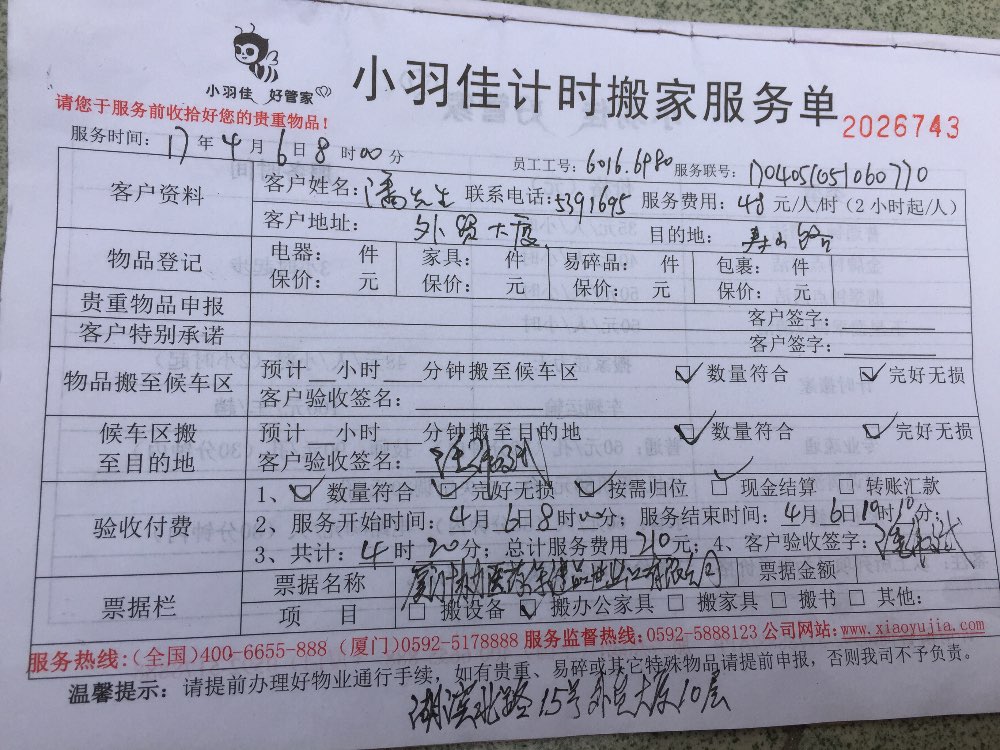 小羽佳 好管家
小羽佳计时搬家服务单
2026743
请您于服务前收拾好您的贵重物品!
服务时间: 17 年 4 月 6 日 8 时 00 分
员工工号: 6016.6980 服务联号:
客户资料
客户姓名: 潘先生 联系电话: 5391695 服务费用: 48 元/人/时 (2小时起/人)
客户地址: 外贸大厦 目的地:
物品登记
电器: 件 家具: 件 易碎品: 件 包裹: 件
保价: 元 保价: 元 保价: 元 保价: 元
贵重物品申报 客户签字:
客户特别承诺 客户签字:
物品搬至候车区
预计 小时 分钟搬至候车区 ☑ 数量符合 ☑ 完好无损
客户验收签名:
候车区搬至目的地
预计 小时 分钟搬至目的地 ☑ 数量符合 ☑ 完好无损
客户验收签名:
验收付费
1、☑ 数量符合 ☑ 完好无损 ☑ 按需归位 ☑ 现金结算 □ 转账汇款
2、服务开始时间: 4 月 6 日 8 时 00 分; 服务结束时间: 4 月 6 日 时 10 分;
3、共计: 4 时 20 分; 总计服务费用 210 元; 4、客户验收签字:
票据栏
票据名称 票据金额
项 目 □ 搬设备 ☑ 搬办公家具 □ 搬家具 □ 搬书 □ 其他:
服务热线:(全国)400-6655-888 (厦门)0592-5178888 服务监督热线:0592-5888123 公司网站:www.xiaoyujia.com
温馨提示: 请提前办理好物业通行手续, 如有贵重、易碎或其它特殊物品请提前申报, 否则我司不予负责。
湖滨北路15号外贸大厦10层